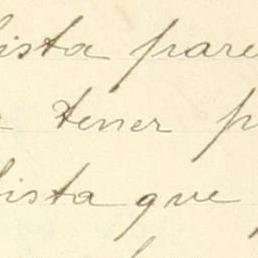 lista pare
tener p
lista que